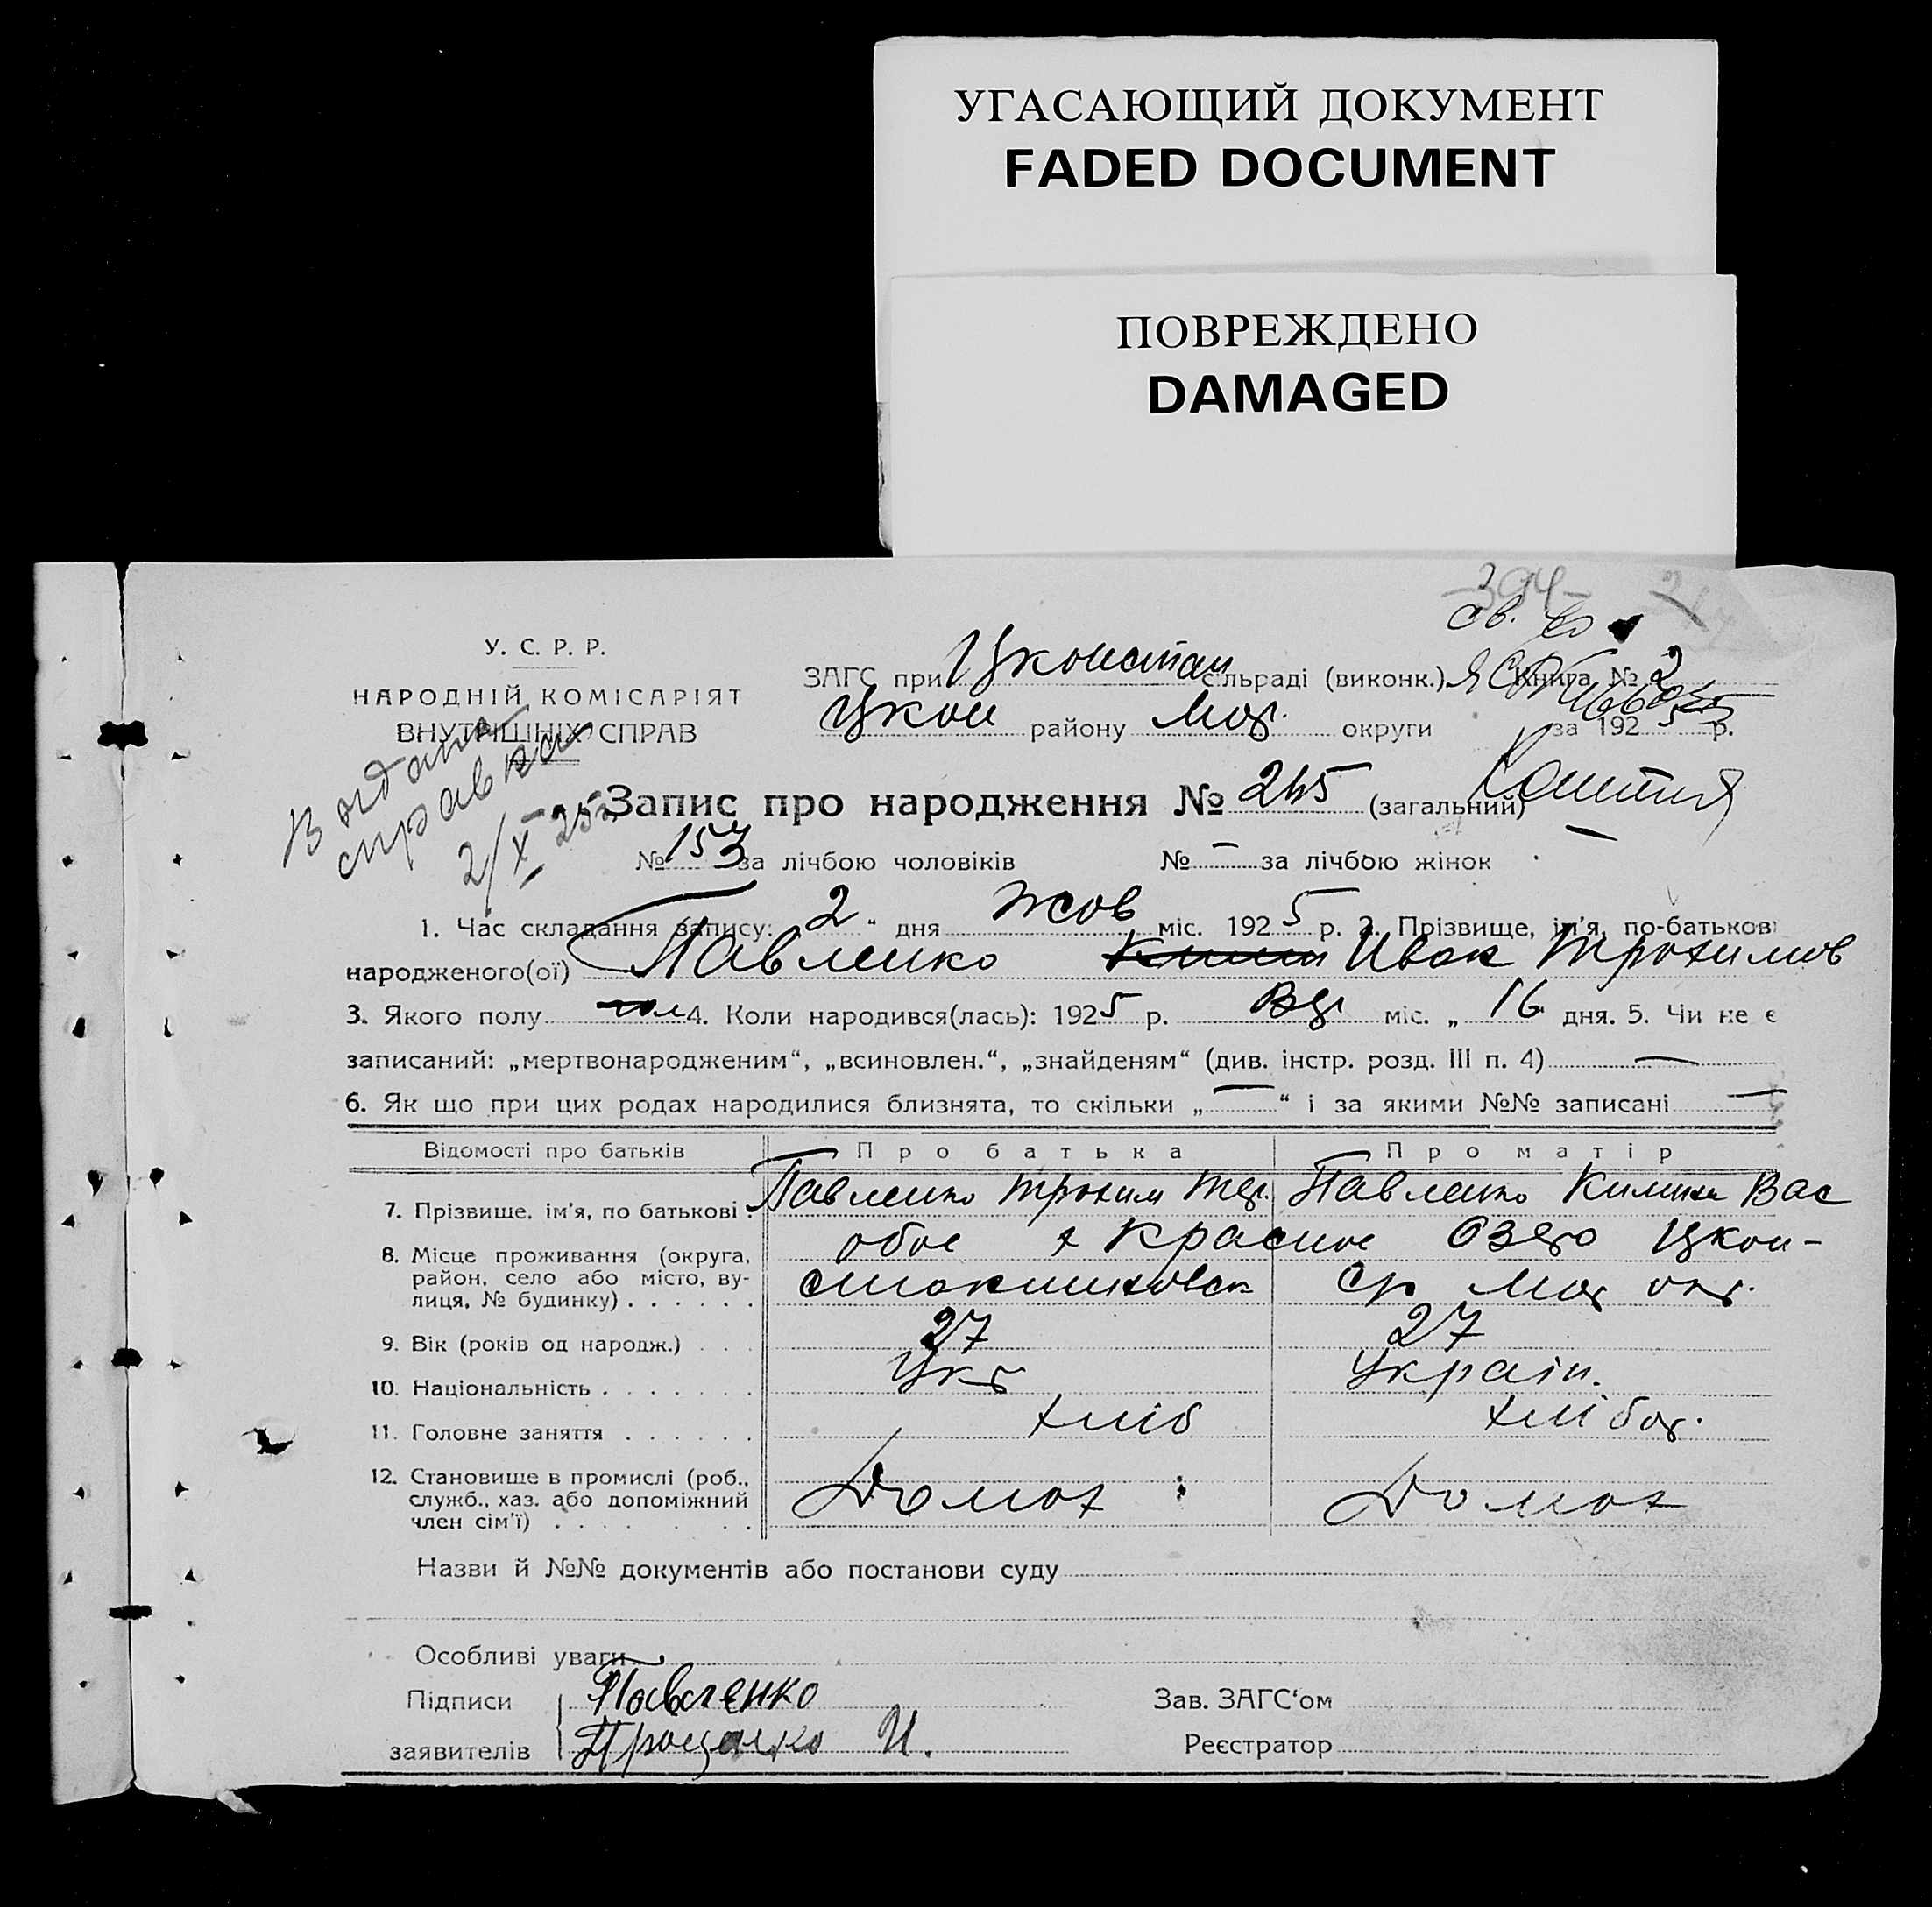 УГАСАЮЩИЙ ДОКУМЕНТ
FADED DOCUMENT
ПОВРЕЖДЕНО
DAMAGED
-394-
У. С. Р. Р.
НАРОДНІЙ КОМІСАРІЯТ
ВНУТРІШНІХ СПРАВ
ЗАГС при Цконстан сільраді (виконк.) Книга № 2
Цкон району округи за 1925 р.
Видана
справка
2/X 25
Запис про народження № 245 (загальний)
№ 153 за лічбою чоловіків № — за лічбою жінок
1. Час складання запису: 2 " дня жов міс. 1925 р. 2. Прізвище, ім'я, по-батькові
народженого(ої) Павленко Иван Трохимов
3. Якого полу чол 4. Коли народився(лась): 1925 р. міс. „ 16 дня. 5. Чи не є
записаний: „мертвонародженим“, „всиновлен.“, „знайденям“ (див. інстр. розд. III п. 4) —
6. Як що при цих родах народилися близнята, то скільки „ — “ і за якими №№ записані —
Відомості про батьків Про батька Про матір
7. Прізвище, ім'я, по батькові . Павленко Трохим Павленко Килина Вас
8. Місце проживання (округа, район, село або місто, вулиця, № будинку) . . . . . . обое х Красное Озеро Цкон-
окг.
9. Вік (років од народж.) . . . 27 27
10. Національність . . . . . . . Укр Україн.
11. Головне заняття . . . . . . хліб хлібор.
12. Становище в промислі (роб., служб., хаз. або допоміжний член сім'ї) . . . . . . . Домох Домох
Назви й №№ документів або постанови суду
Особливі уваги
Підписи Павленко Зав. ЗАГС'ом
заявителів Проценко И. Реєстратор